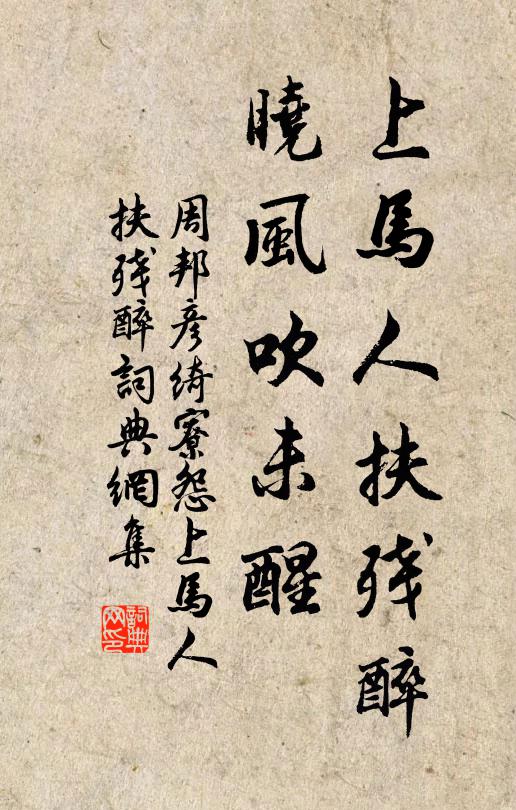 上馬人扶残醉
曉風吹未醒
周邦彦綺寮怨上馬人
扶残醉詞典網集
詞典网印